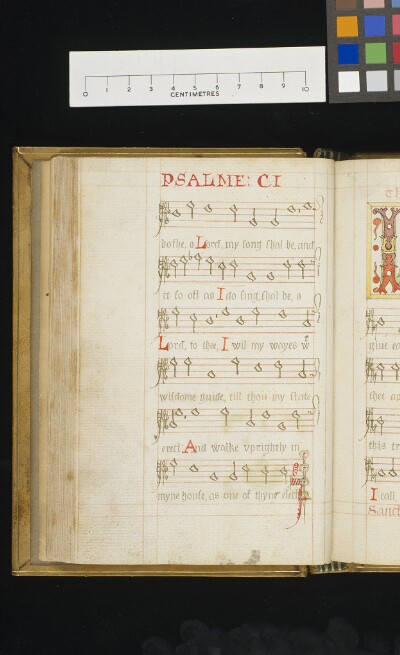 0 1 2 3 4 5 6 7 8 9 10
CENTIMETRES
PSALME: CI
bothe, o Lord, my song shal be, and
it so oft as I do sing, shal be, o
Lord, to thee, I wil my wayes w
wisdome guide, till thou my state
erect; And walke vprightly in
myne house, as one of thyne elect
thee
this
I call,
Sanct